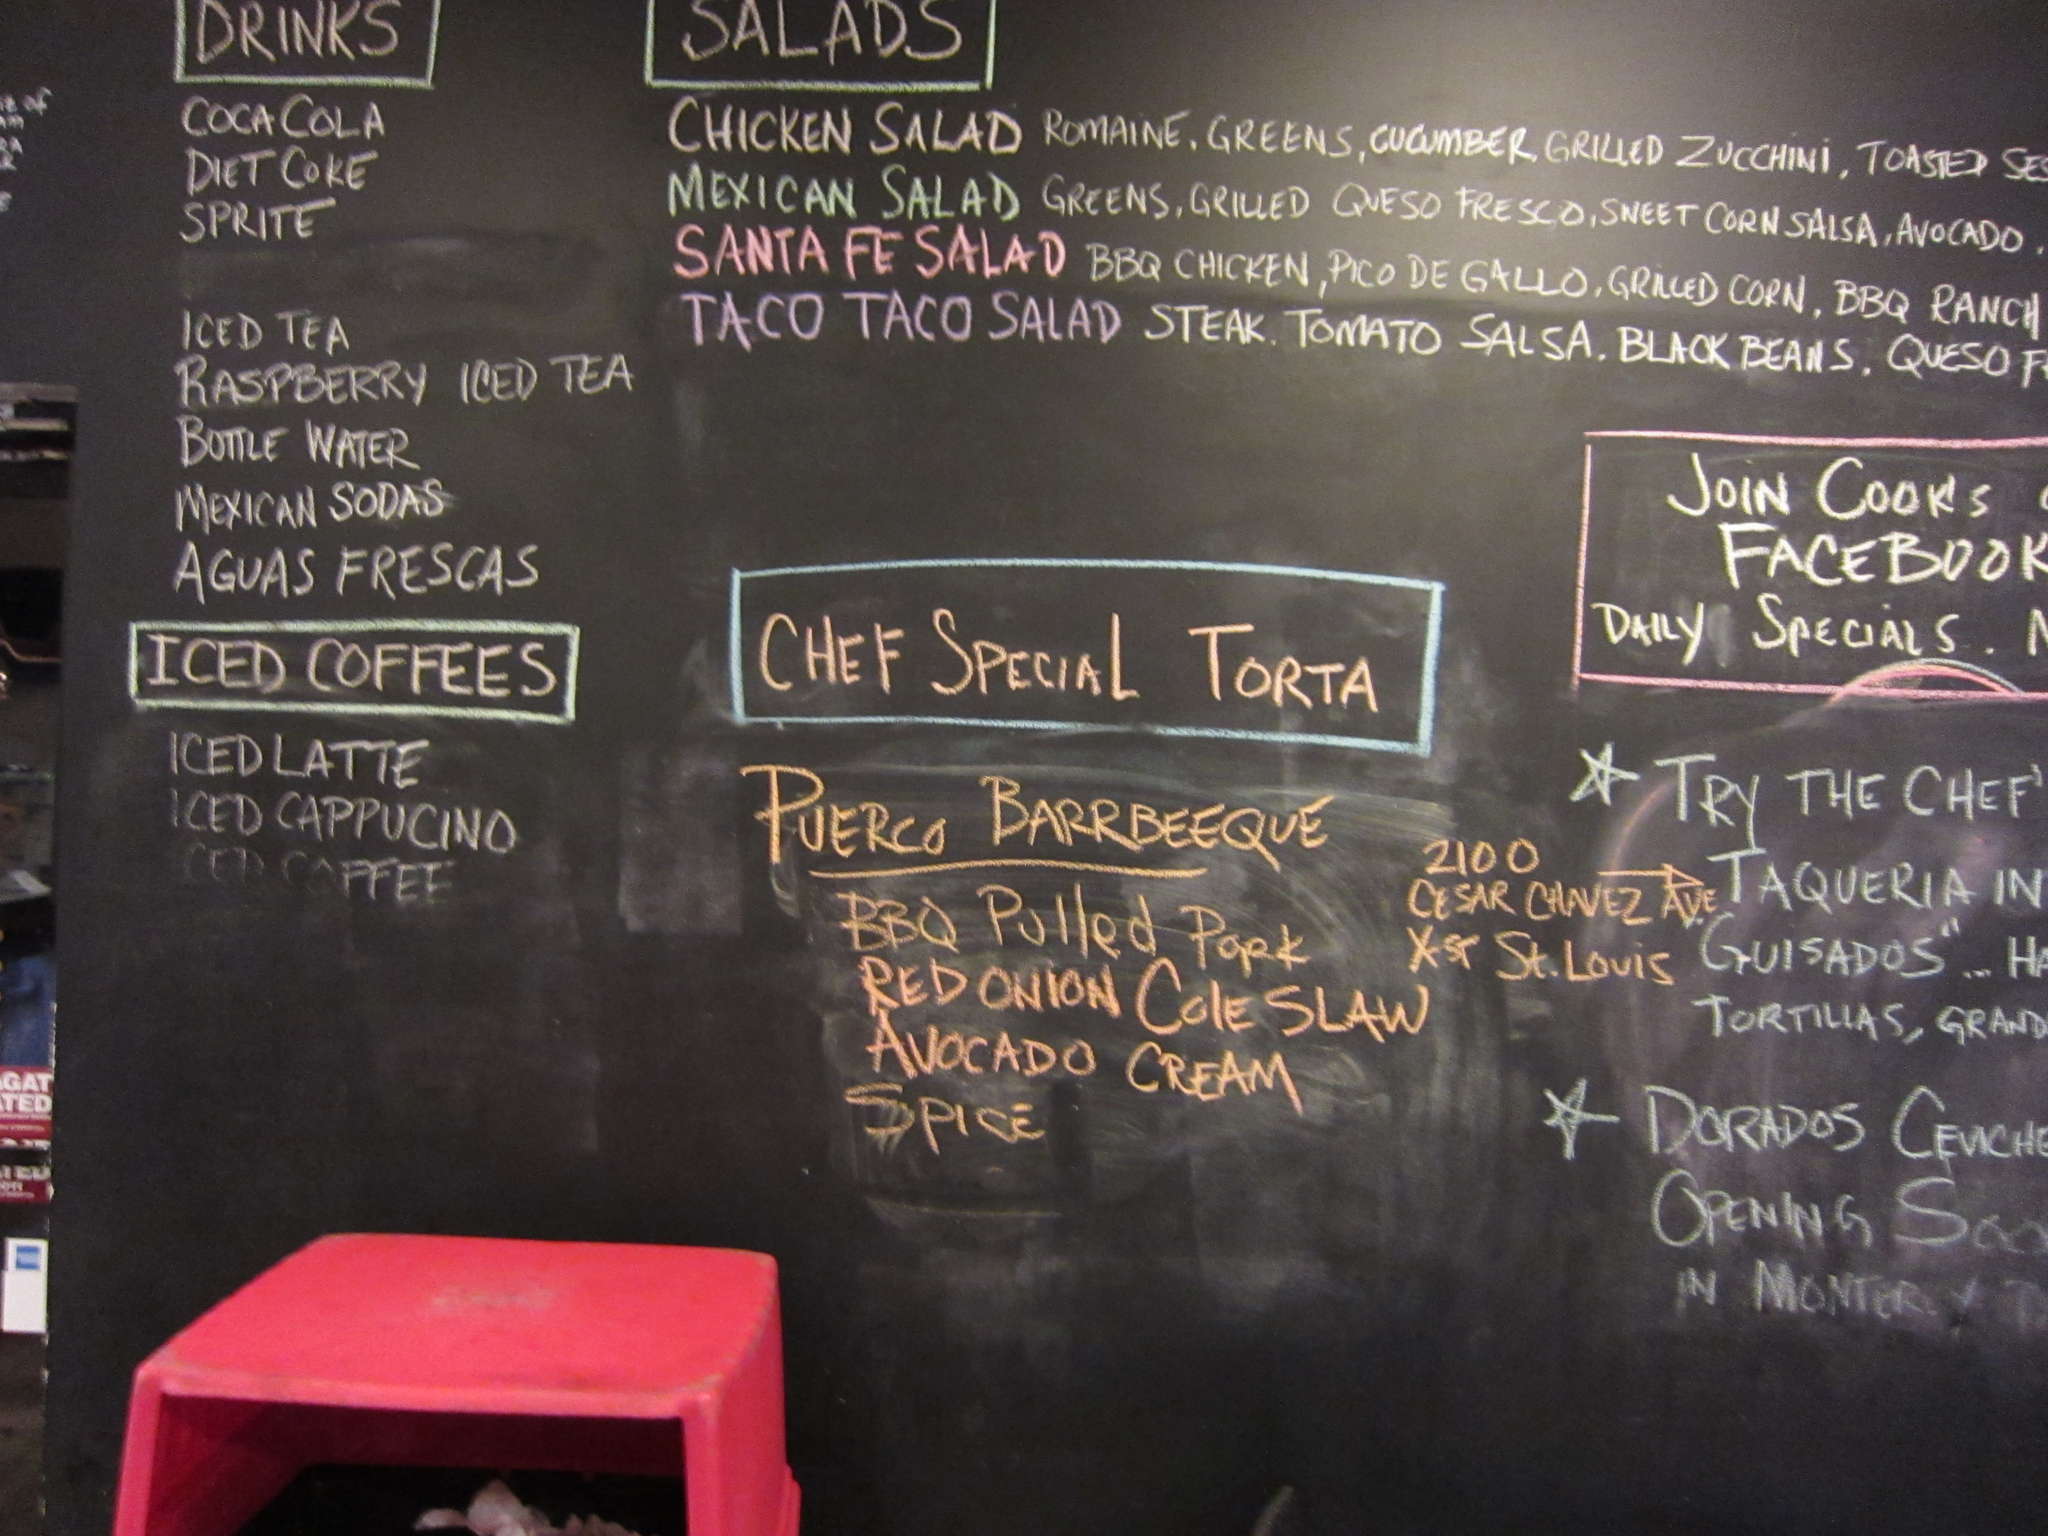 DRINKS
COCA COLA
DIET COKE
SPRITE
ICED TEA
RASPBERRY ICED TEA
BOTTLE WATER
MEXICAN SODAS
AGUAS FRESCAS
ICED COFFEES
ICED LATTE
ICED CAPPUCINO
ICED COFFEE
SALADS
CHICKEN SALAD ROMAINE. GREENS, CUCUMBER, GRILLED ZUCCHINI, TOASTED SES
MEXICAN SALAD GREENS, GRILLED QUESO FRESCO, SWEET CORN SALSA, AVOCADO.
SANTA FE SALAD BBQ CHICKEN, PICO DE GALLO, GRILLED CORN, BBQ RANCH
TACO TACO SALAD STEAK. TOMATO SALSA. BLACK BEANS. QUESO F
CHEF SPECIAL TORTA
PUERCO BARRBEEQUE
BBQ Pulled Pork
RED ONION Cole SLAW
AVOCADO CREAM
SPICE
JOIN COOK'S
FACEBOOK
DAILY SPECIALS.
2100
CESAR CHAVEZ AVE
X ST ST. LOUIS
TRY THE CHEF'
TAQUERIA IN
"GUISADOS"... HA
TORTILLAS, GRAND
DORADOS CEVICHE
OPENING SOO
IN MONTEREY